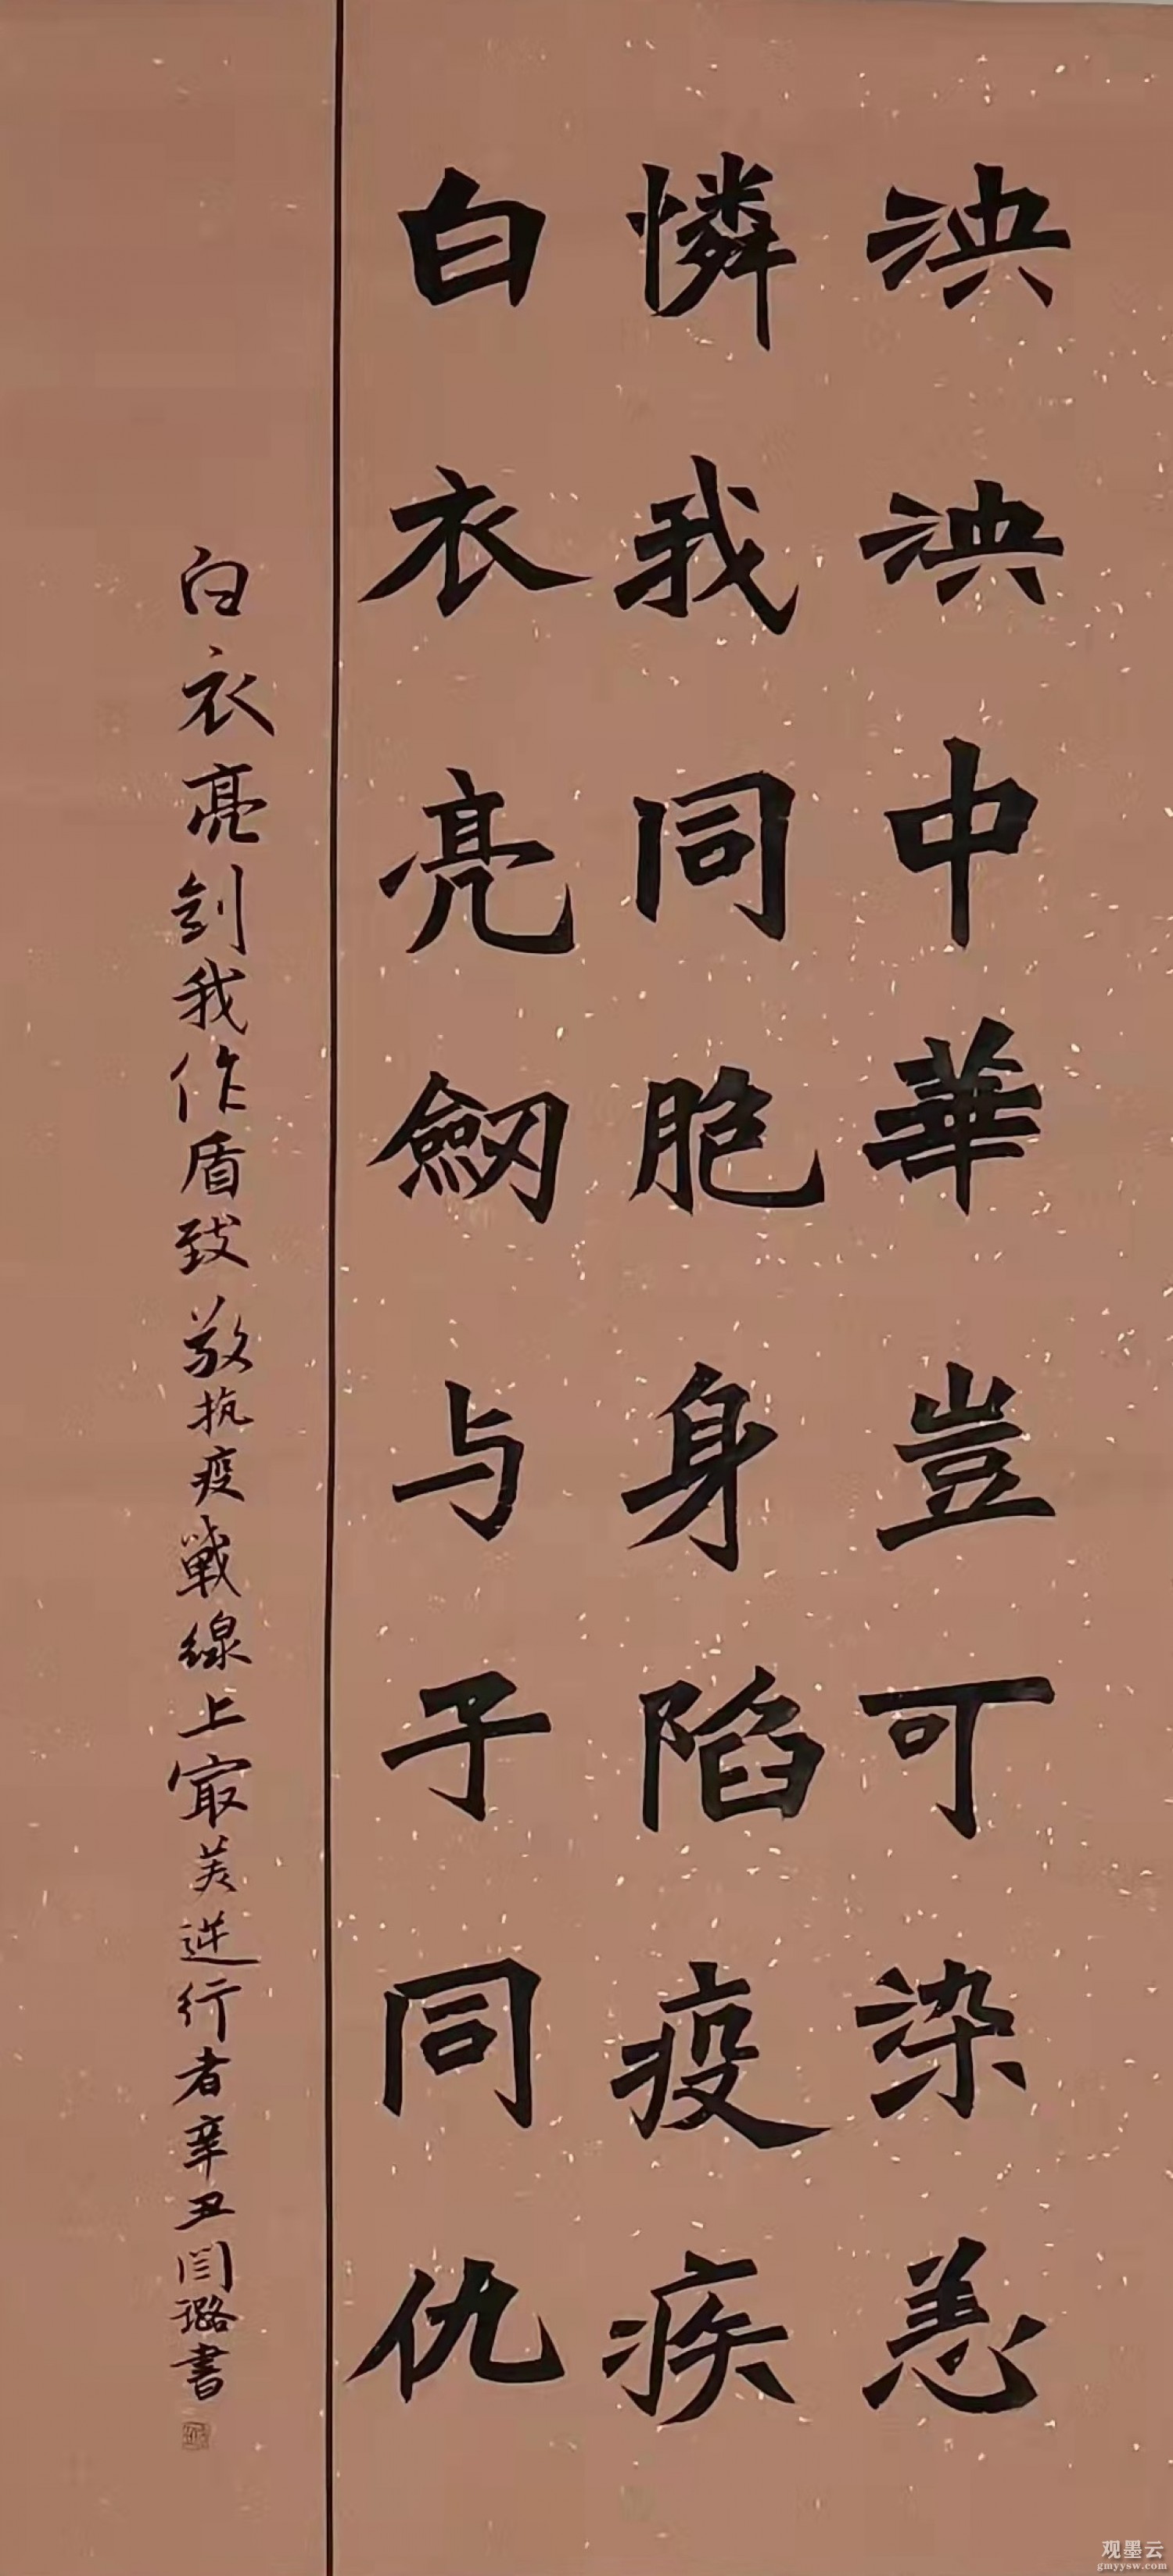 泱泱中華豈可染恙
憐我同胞身陷疫疾
白衣亮劒与子同仇
白衣亮剑我作盾致敬抗疫戰線上最美逆行者辛丑闫璐書
观墨云
gmyysw.com